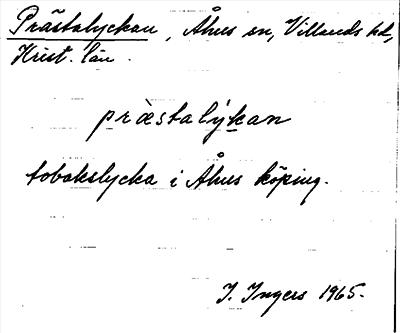 Prästalyckan, Åhus sn, Villands hd,
Krist. län.
præ̀stalýkan
tobakslycka i Åhus köping.
I. Ingers 1965.